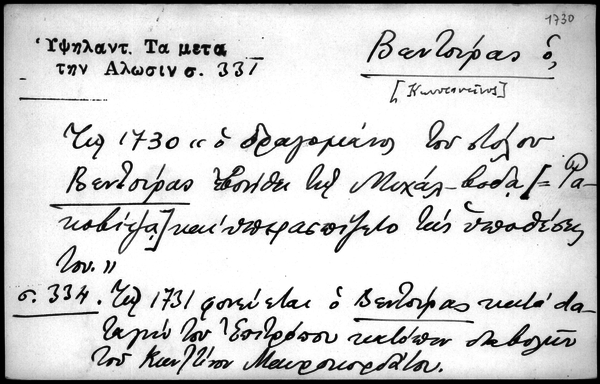 1730
Ὑψηλαντ. Τα μετα
την Αλωσιν σ. 331
Βεντσίρας ὁ,
[Κωνσταντῖνος]
Τῷ 1730 „ ὁ δραγομάνος τοῦ στόλου
Βεντσίρας ἐβοήθει τῷ Μιχάλ-βοδα [= Ρα-
κοβίτζᾳ] καὶ ὑπερασπίζετο τὰς ὑποθέσεις
του. „
σ. 334. Τῷ 1731 φονεύεται ὁ Βεντσίρας κατὰ δια-
ταγὴν τοῦ Ἐπιτρόπου κατόπιν διαβολῶν
τοῦ Κωνστ/ίνου Μαυροκορδάτου.